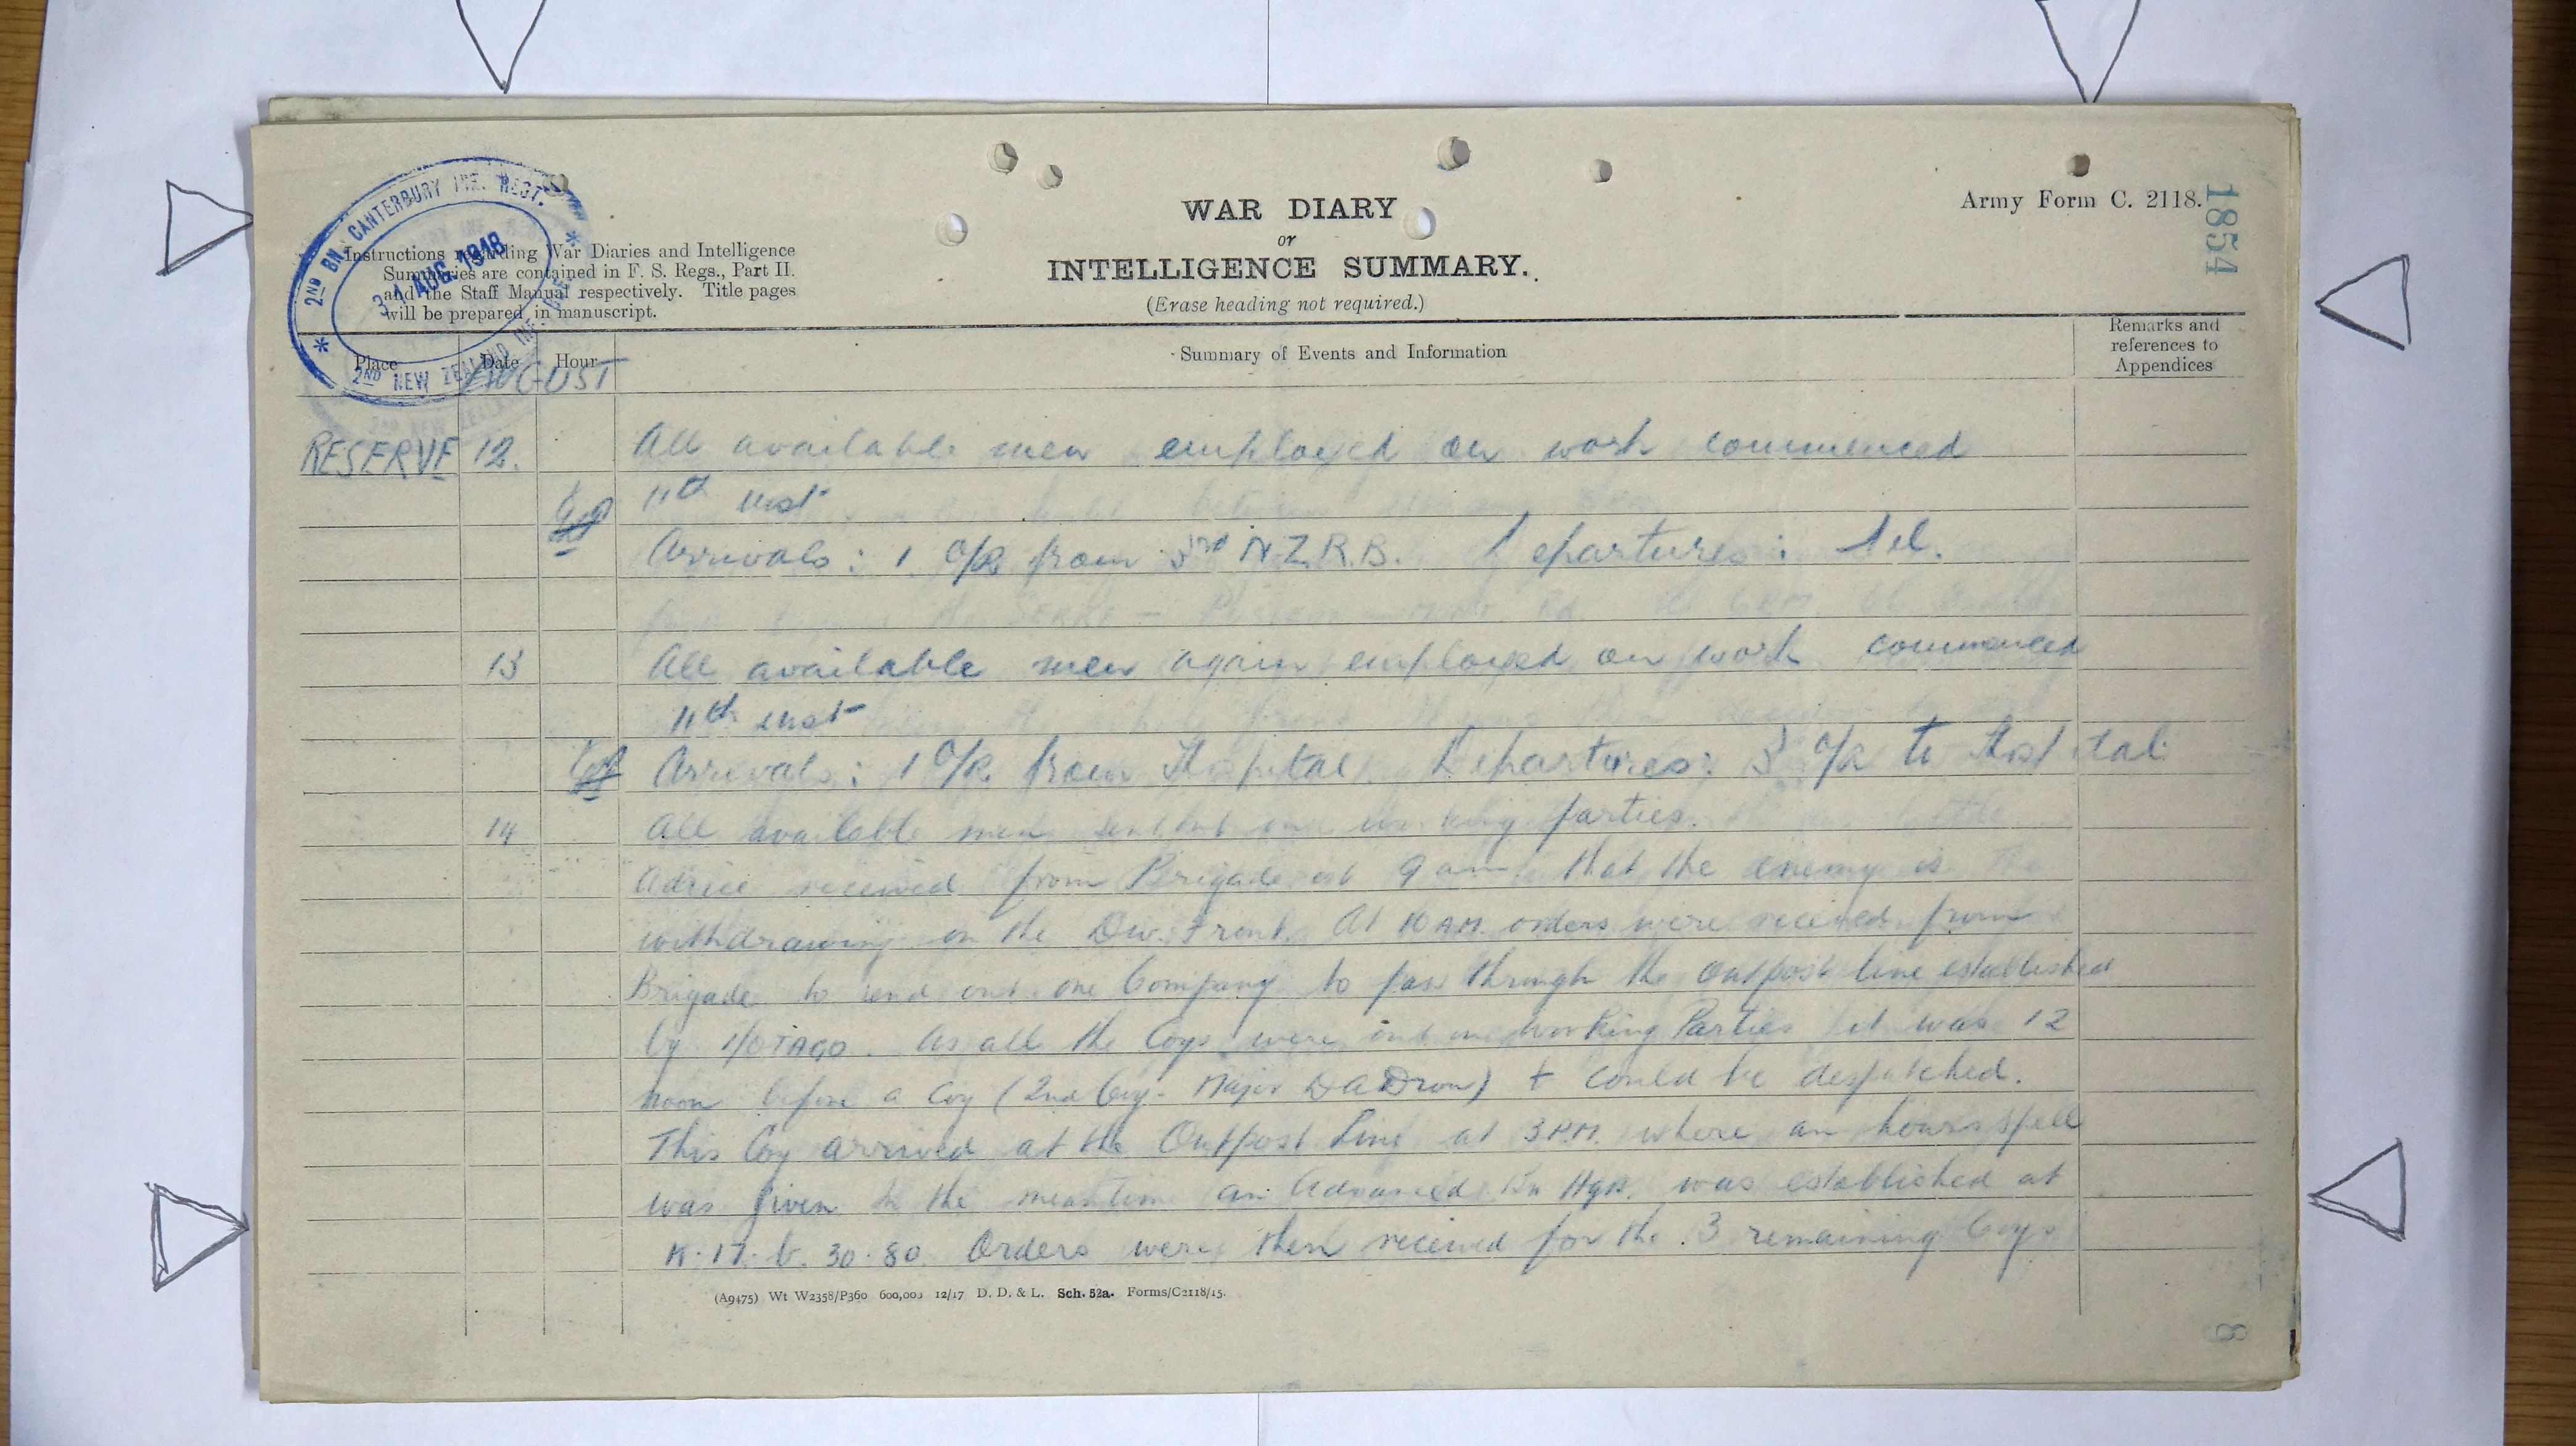 2ND BN. CANTERBURY INF. REGT.
31 AUG. 1918
2ND NEW ZEALAND INF. BDE.
Instructions regarding War Diaries and Intelligence
Summaries are contained in F. S. Regs., Part II.
and the Staff Manual respectively. Title pages
will be prepared in manuscript.
WAR DIARY
or
INTELLIGENCE SUMMARY.
(Erase heading not required.)
Army Form C. 2118.
1854
Place Date Hour Summary of Events and Information Remarks and
references to
Appendices
AUGUST
RESERVE 12. All available men employed on work commenced
11th inst
Arrivals : 1 O/R from 3rd N.Z.R.B. Departures : Nil.
13 All available men again employed on work commenced
11th inst
Arrivals : 1 O/R from Hospital Departures : 3 O/R to Hospital
14 All available men sent out on working parties.
Advice received from Brigade at 9 am that the enemy is
withdrawing on the Div. Front. At 10 AM. orders were received from
Brigade to send out one Company to pass through the Outpost line established
by 1/OTAGO. As all the Coys were out on Working Parties it was 12
noon before a Coy (2nd Coy. Major D A Dron) + could be despatched.
This Coy arrived at the Outpost Line at 3 P.M. where an hours spell
was given In the meantime an Advanced Bn Hqrs. was established at
K. 17. b. 30. 80. Orders were then received for the 3 remaining Coys
(A9475) Wt W2358/P360 600,000 12/17 D. D. & L. Sch. 52a. Forms/C2118/15.
8